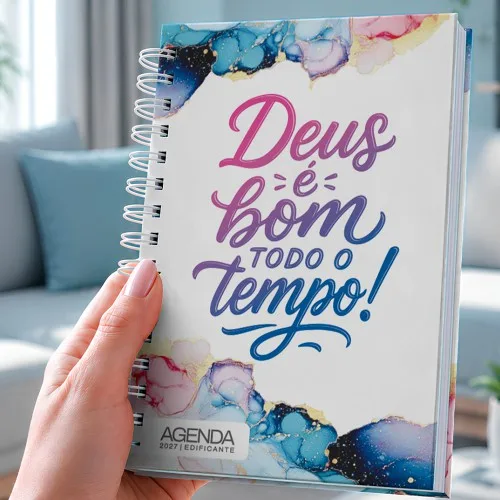 Deus
é
bom
TODO O
tempo!
AGENDA
2027 | EDIFICANTE